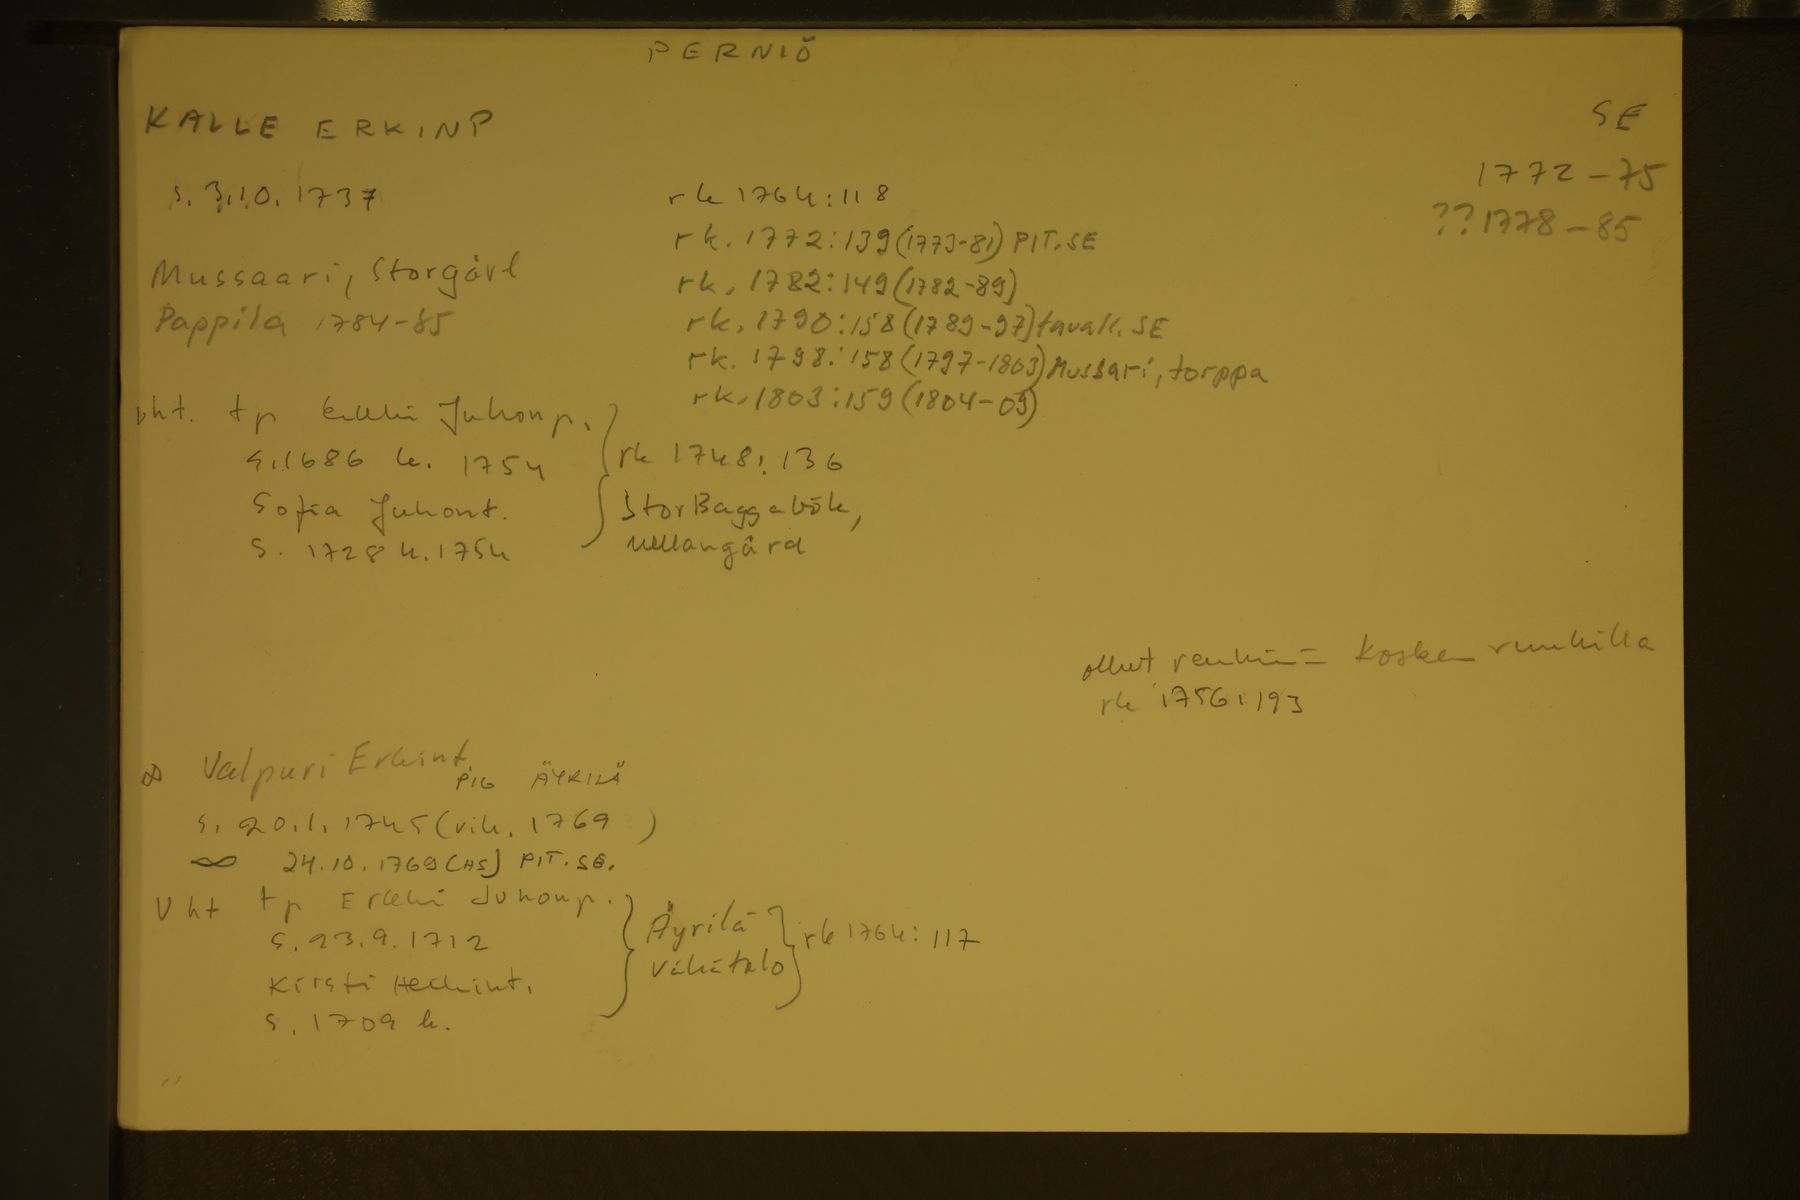 PERNIÖ
KALLE ERKINP
SE
s. 3.10. 1737
1772-75
??1778-85
rk 1764:118
rk. 1772:139(1773-81) PIT.SE
Mussaari, Storgård
rk. 1782:149(1782-89)
Pappila 1784-85
rk. 1790:158(1789-97)tavall. SE
rk. 1798:158(1797-1803)Mussari, torppa
rk. 1803:159(1804-09)
vht. tp Erkki Juhonp.
s.1686 k. 1754
rk 1748:136
Sofia Juhont.
StorBaggaböle,
s. 1728 k.1754
Mellangård
ollut renkinä Kosken ruukilla
rk 1756:193
∞ Valpuri Erkint
PIG ÄYRILÄ
s. 20.1. 1745(vih. 1769 )
∞ 24.10.1769(HS) PIT.SE.
Vht tp Erkki Juhonp.
s. 23.9.1712
Äyrilä
Vähätalo
rk 1764:117
Kirsti Heikint.
s. 1709 k.